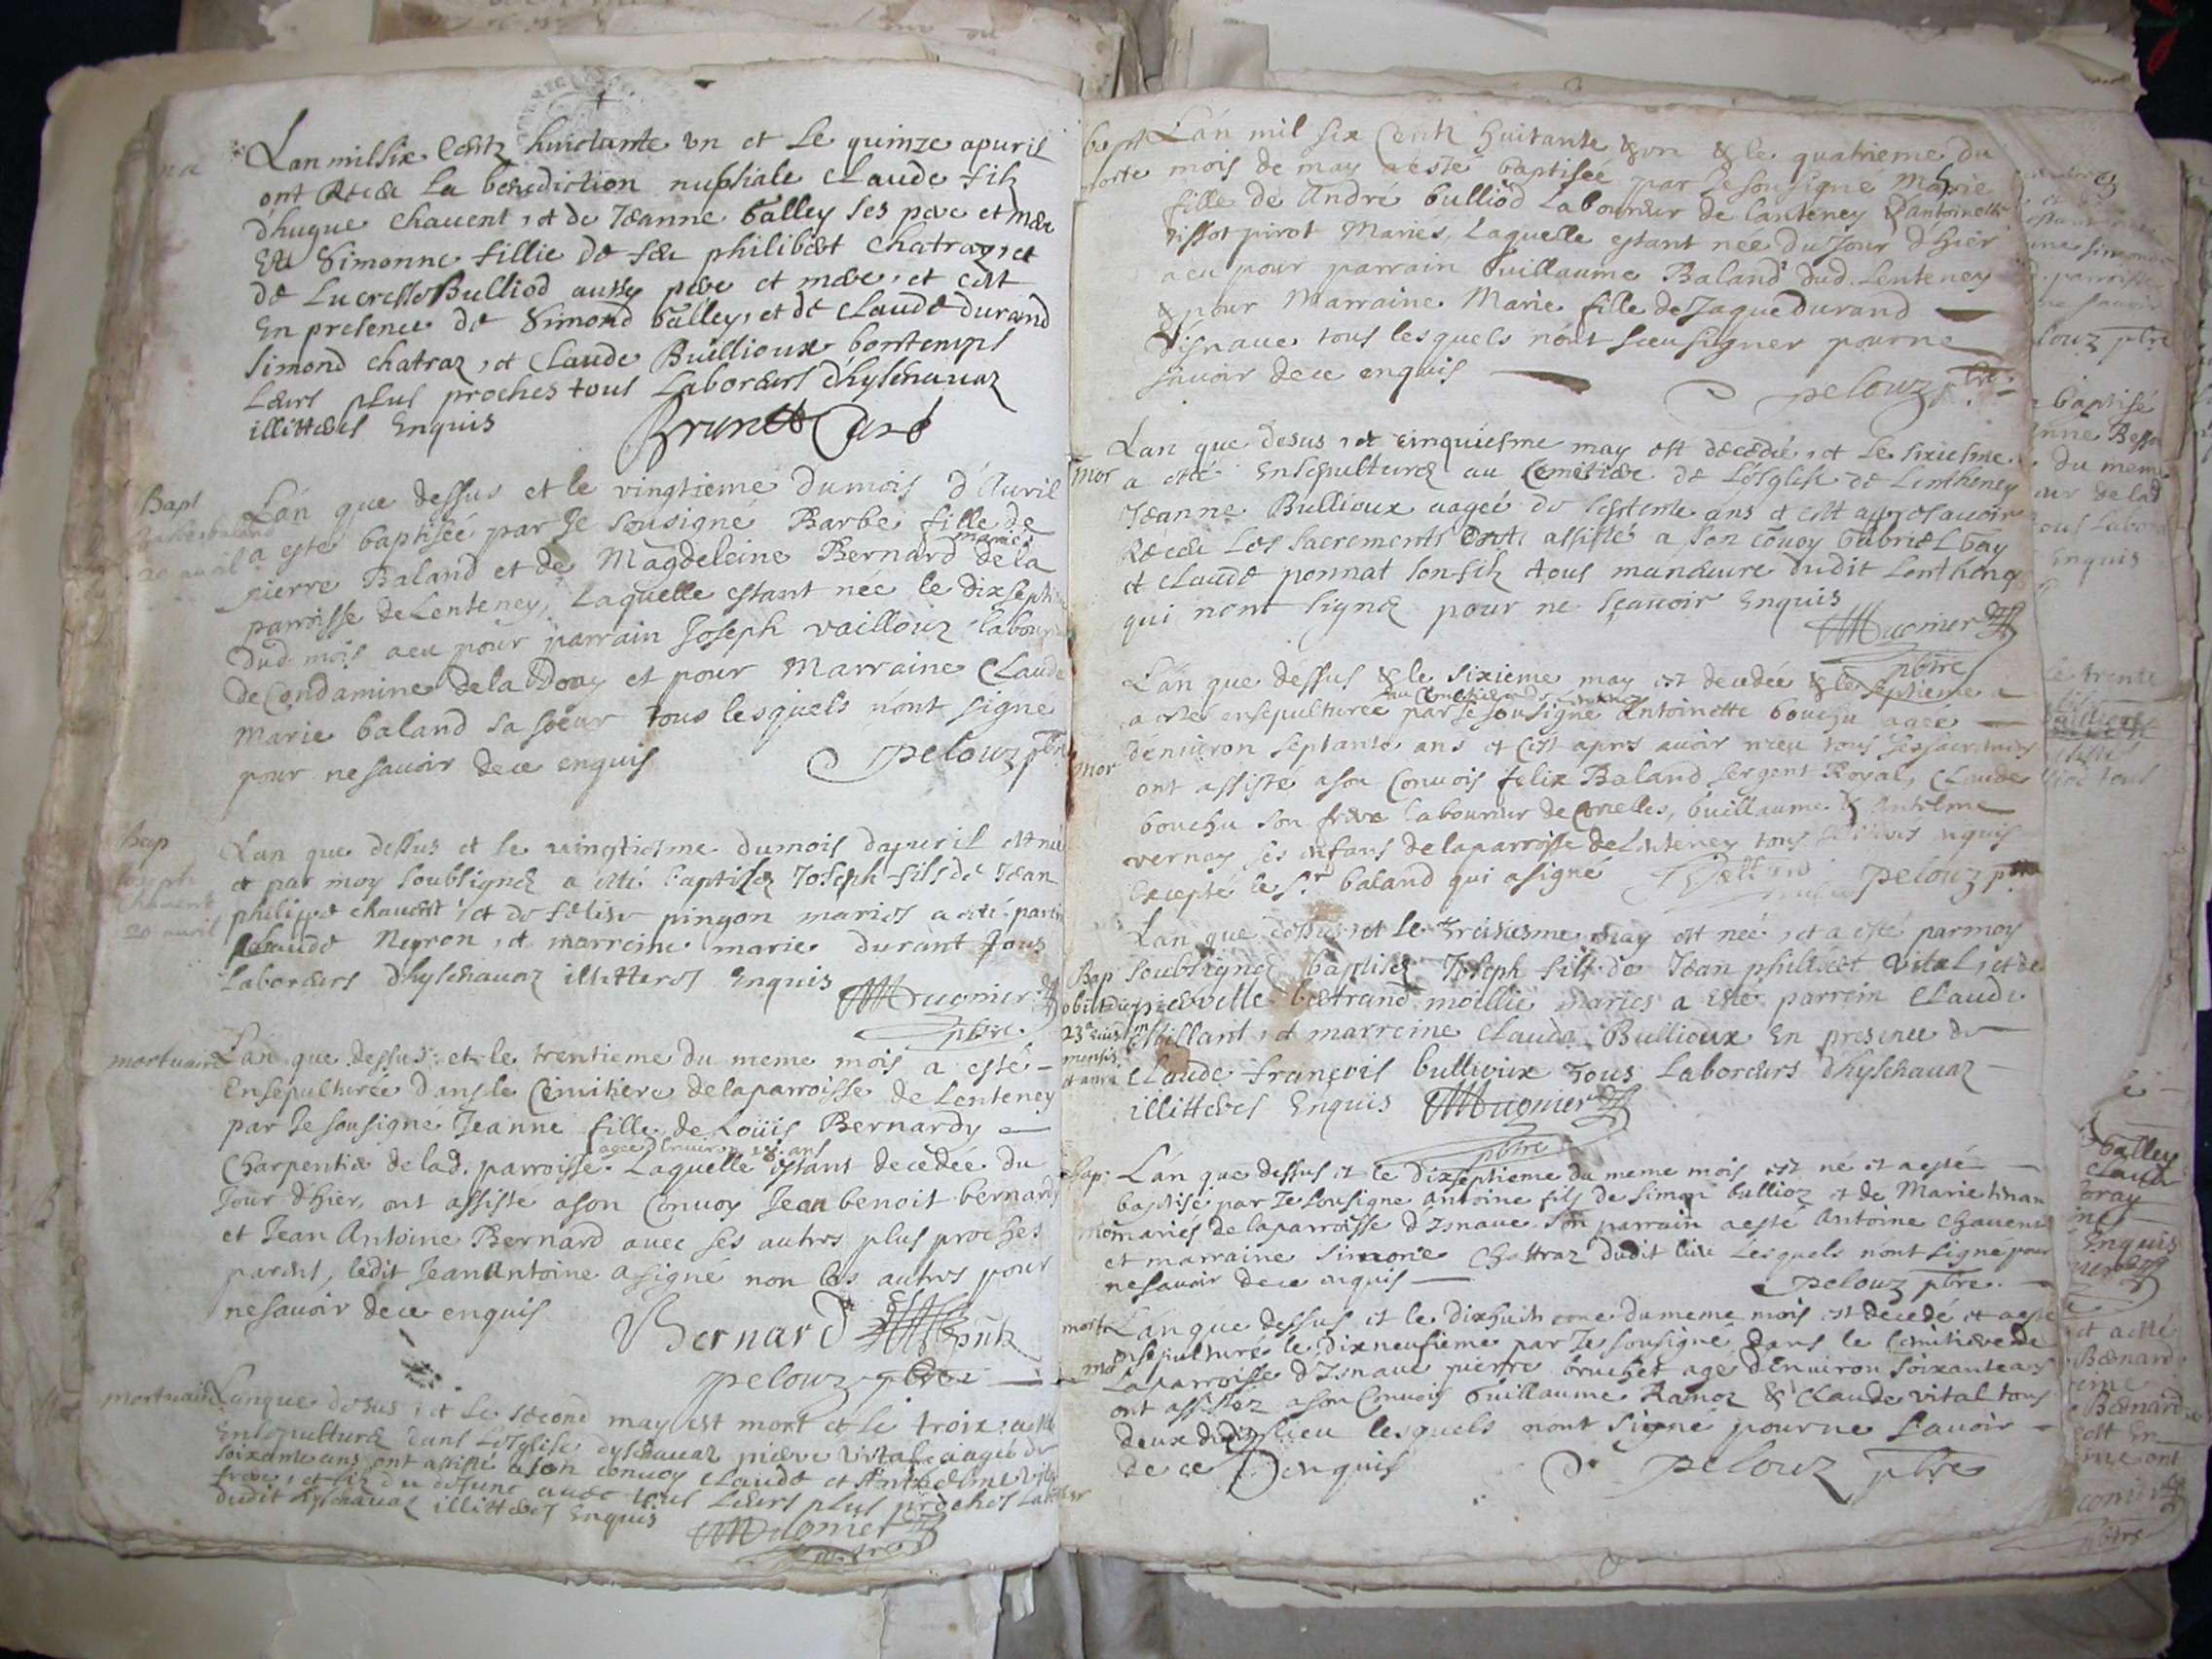 Lan mil six Centz huictante un et le quinze apuril
ont Receu la benediction nuptiale Claude filz
d'hugue chauent, et de Jeanne Galley ses pere et mere
Et Simonne fillie de feu philibert Chatraz, et
de Lucresse Bulliod aussy pere et mere, et est
En presence de Simond Galley, et de Claude Durand
Simond Chatraz, et Claude Bullioux bontemps
Leurs plus proches tous Laboreurs d'hysenauaz
illitteres Enquis Brunet Curé
Bapt
barbe baland
20 auril
Lán que dessus et le vingtieme du mois d'Auril
a esté baptisée par Je sousigné Barbe fille de
pierre Baland et de Magdeleine Bernard mariés de la
parroisse de Lenteney, Laquelle estant née le dixsepti
dud. mois a eu pour parrain Joseph vaillouz labour
de Condamine de la Doay et pour Marraine Claude
Marie baland sa soeur tous lesquels n'ont signe
pour ne sauoir de ce enquis pelouz pbre
Bap
Joseph
Chauent
20 auril
Lan que dessus et le uingtiesme du mois dapuril est né
et par moy soubsigné a été baptisez Joseph fils de Jean
philippe chauent, et de felise pingon mariés a eté parin
Claude Neyron, et marreine marie durant tous
laboreurs d'hysenauaz illitteres Enquis
pbre.
mortuaire
Lán que dessus et le trentieme du meme mois a esté
Ensepulturée dans le Cimitiere de la parroisse de Lenteney
par Je sousigné Jeanne fille de Loüis Bernardy
agee d'enuiron 18 ans
Charpentier de lad. parroisse. Laquelle estant decedée du
Jour d'hier, ont assisté a son Conuoy Jean benoit bernardy
et Jean Antoine Bernard auec ses autres plus proches
parens, ledit Jean Antoine a signé non les autres pour
ne sauoir de ce enquis
Bernard pnt
pelouz pbre
mortuaire
Lan que desus, et le second may est mort et le troix a esté
Ensepulturé dans L'esglise dysenauaz pierre vital aagé de
soixante ans ont assisté a son conuoy Claude et Anthelme vital
frere, et filz du defunc auec tous leurs plus proches
dudit hysenauaz illitteres Enquis
bapt
Lán mil six Centz huitante & un & le quatrieme du
mois de may a esté baptisée par Je sousigné Marie
fille de André bulliod Laboureur de Lanteney & d'antoinette
tissot pirot Mariés, Laquelle estant née du Jour d'hier
a eu pour parrain Guillaume Baland dud. Lenteney
& pour Marraine Marie fille de Jaque Durand
d'isnaue tous lesquels n'ont sceu signer pour ne
sauoir de ce enquis
pelouz pbre
mor
Lan que desus, et cinquiesme may est decedée, et le sixiesme
a esté Ensepulturée au Cemetiere de L'esglise de Lentheney
Jeanne Bullioux aagée de septente ans et est apres auoir
Receu les sacrements ont assisté a son conuoy Gabriel Gay
et Claude ponnat son filz tous manoeuvre dudit Lentheney
qui n'ont signé pour ne sçauoir Enquis
pbre
mor
Lán que déssus & le sixieme may est decedée & le septieme a
au Cemetiere de Lenteney
a esté ensepulturée par Je sousigné Antoinette bouchu agée
d'enuiron septante ans et c'est apres auoir receu tous ses sacremens
ont assisté a son Conuois felix Baland sergent Royal, Claude
bouchu son frere laboureur de Corcelles, Guillaume & Antelme
vernay ses enfans de la parroisse de Lenteney tous illiteres enquis
Excepté le Sr. baland qui a signé pelouz pbre
Bap
obiit die
23a eiusdem
mensis
et anni
Lan que dessus, et le treiziesme may est née, et a esté par moy
soubsigné baptisez Joseph fils de Jean philibert vital, et de
pieruette bertrand moillie mariés a esté parrein Claude
billiant, et marreine Claude Bullioux En presence de
Claude françois bullioux tous Laboreurs d'hysenauaz
illitteres Enquis
pbre
bap.
Lán que dessus et le dixseptieme du meme mois est né et a esté
baptisé par Je sousigné Antoine fils de Simon bullioz et de Marie tinan
mariés de la parroisse d'Isnaue. Son parrain a esté Antoine Chauent
et marraine Simone Chattraz dudit lieu Lesquels n'ont signé pour
ne sauoir de ce enquis pelouz pbre.
mort
Lán que dessus et le dixhuitieme du meme mois est decedé et a esté
ensepulturé le dixneufieme par Je sousigné dans le Cemitiere de
La parroisse d'Isnaue pierre bruchet agé d'Enuiron soixante ans
ont assistez a son Conuois Guillaume Ramoz & Claude vital tous
deux dudit lieu lesquels n'ont signe pour ne sauoir
de ce enquis pelouz pbre